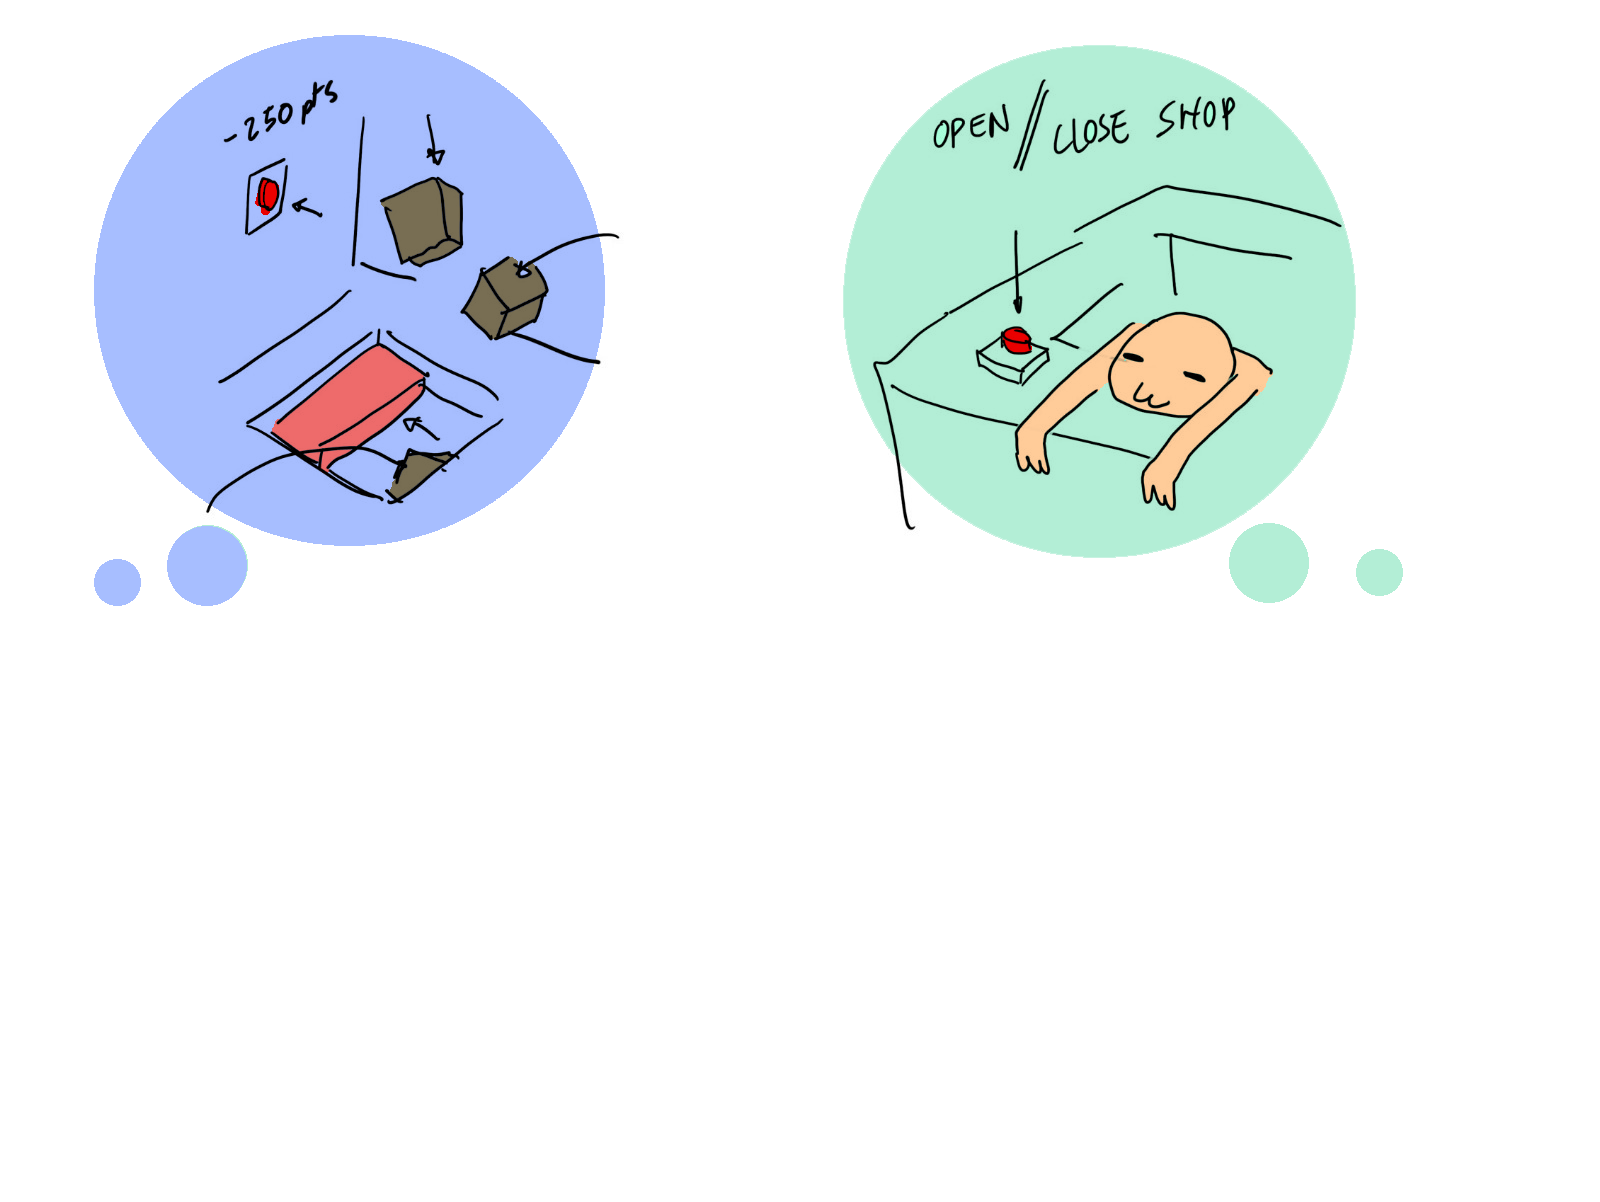 -250pts
OPEN // CLOSE SHOP